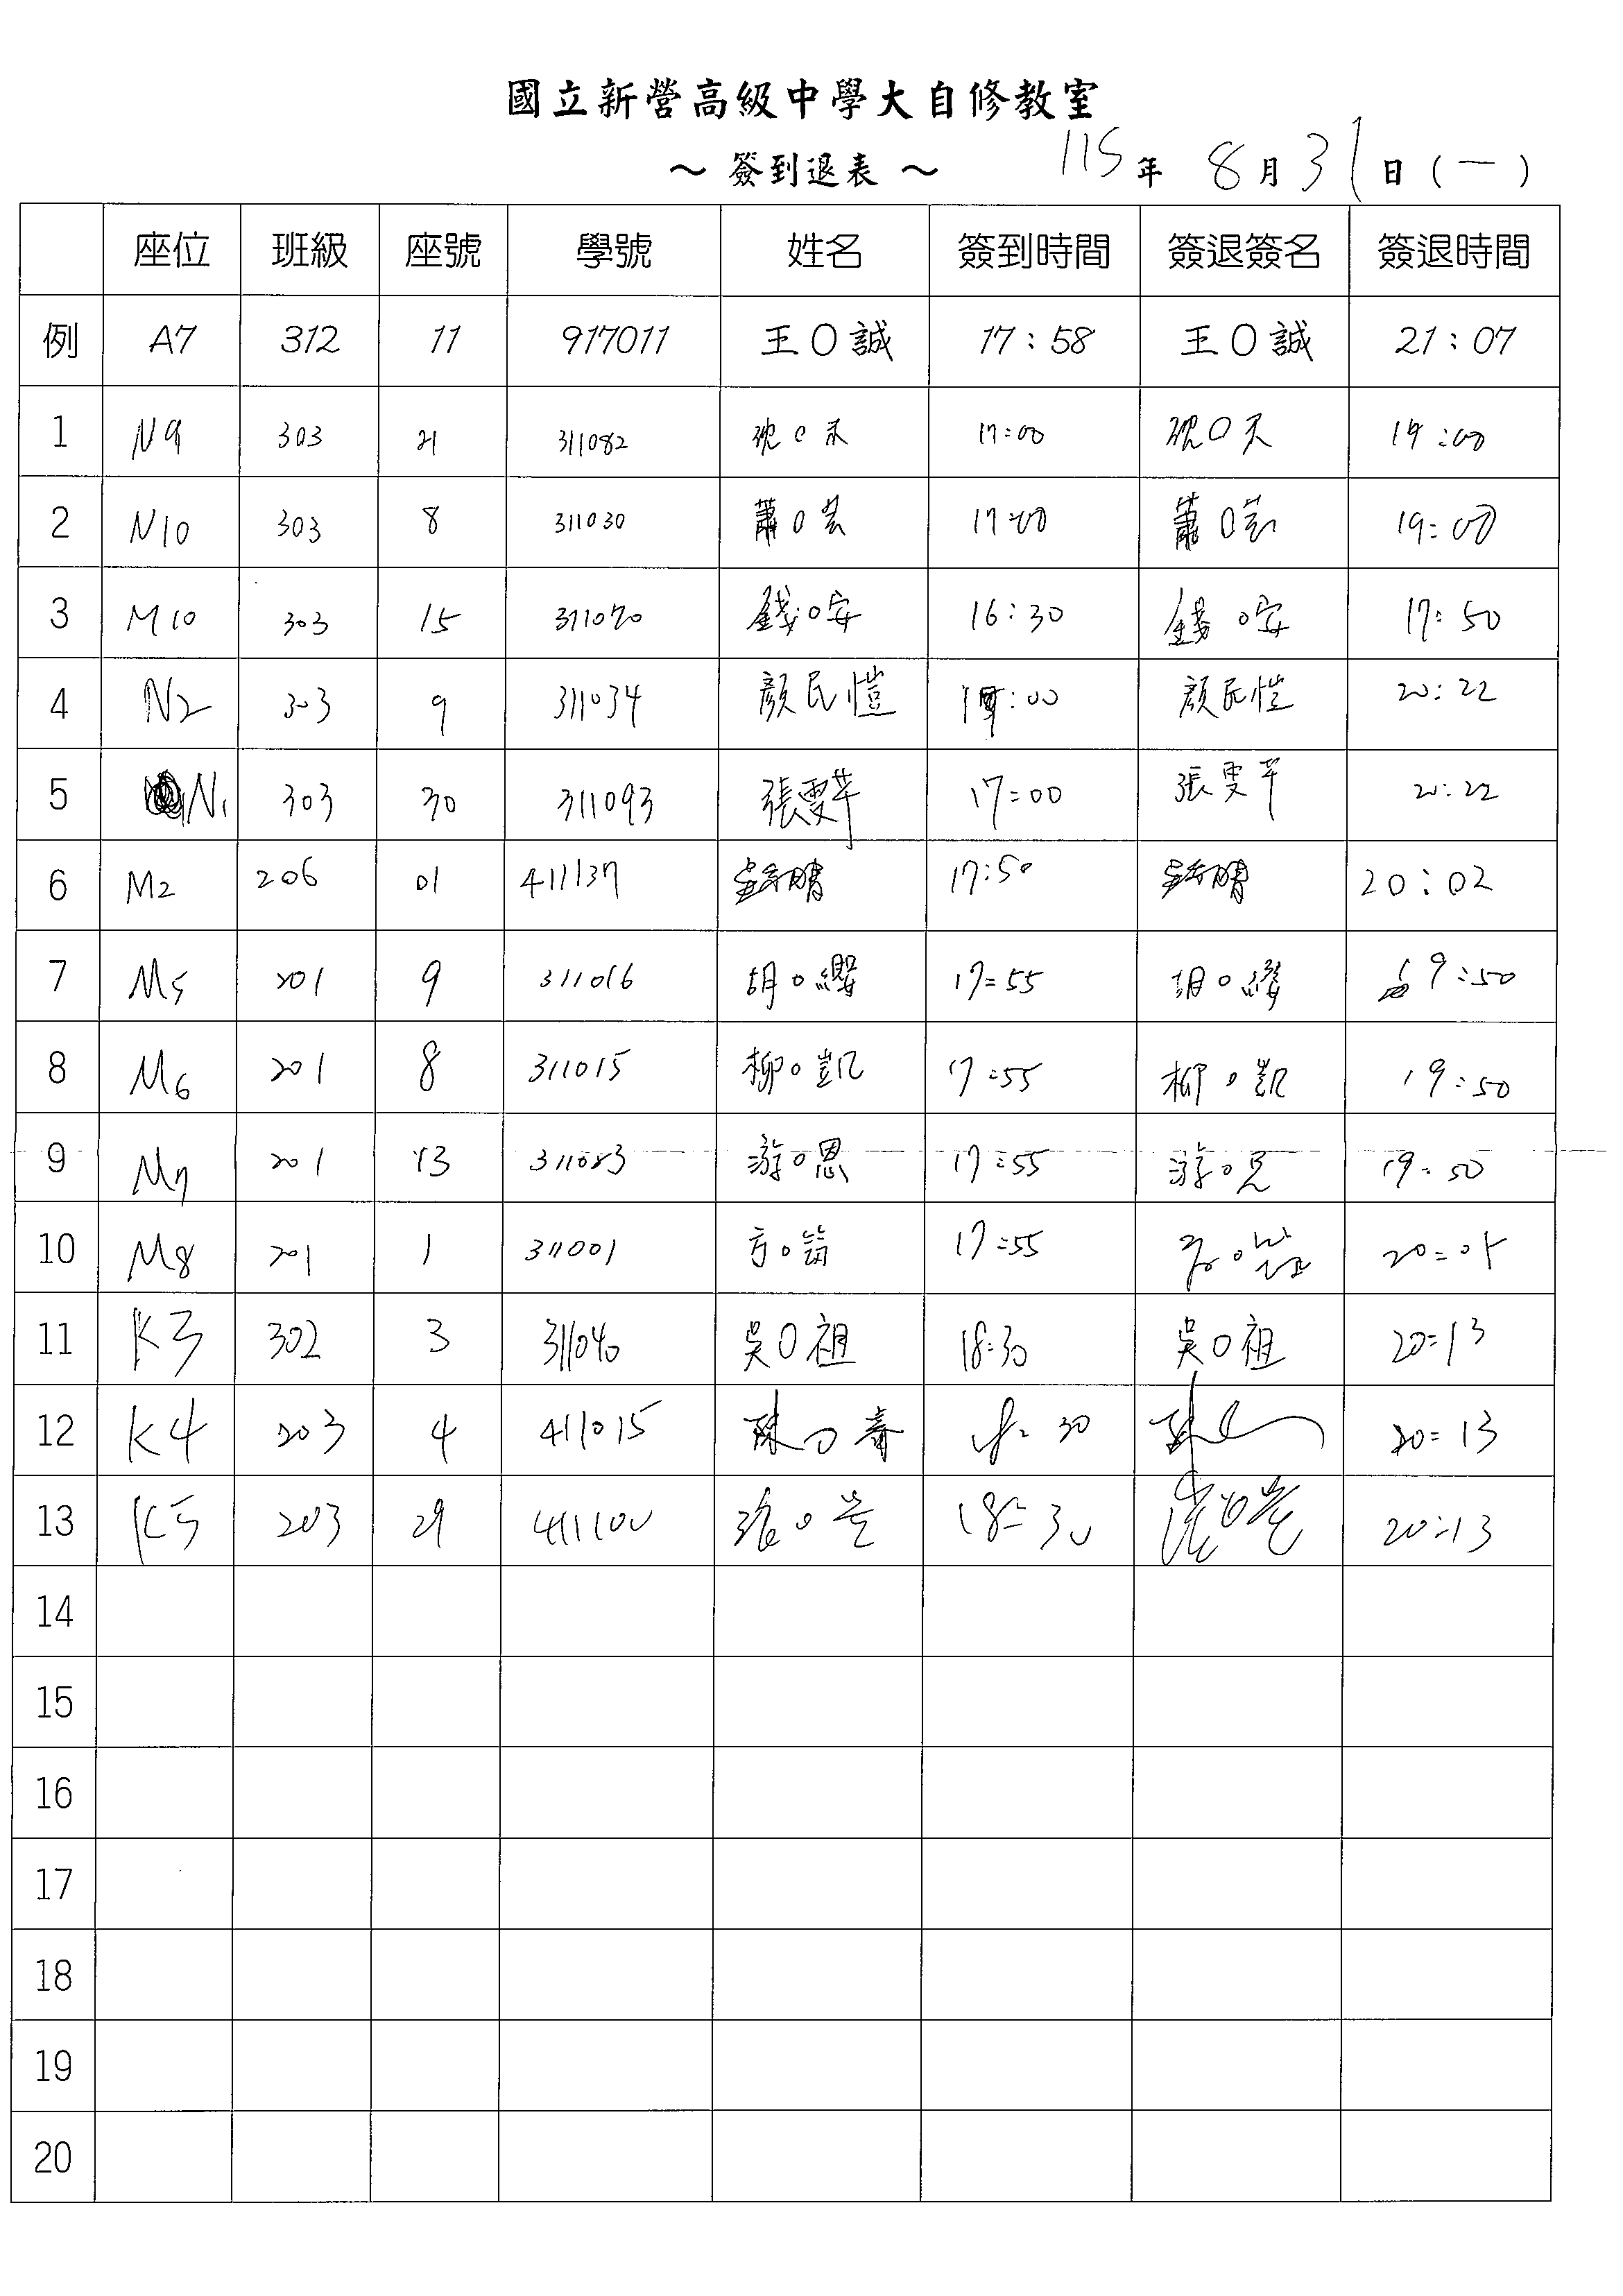 國立新營高級中學大自修教室
～ 簽到退表 ～ 115年 8月31日(一)
座位 班級 座號 學號 姓名 簽到時間 簽退簽名 簽退時間
例 A7 312 11 917011 王O誠 17:58 王O誠 21:07
1 N9 303 21 311082 沈O天 17:00 沈O天 19:00
2 N10 303 8 311030 蕭O芸 17:00 蕭O芸 19:00
3 M10 303 15 311070 錢O安 16:30 錢O安 17:50
4 N2 303 9 311034 顏民愷 :00 顏民愷 20:22
5 N1 303 30 311093 張雯芊 17:00 張雯芊 20:22
6 M2 206 01 411137 17:50 20:02
7 M5 201 9 311016 胡O纓 17:55 胡O纓 19:50
8 M6 201 8 311015 柳O凱 17:55 柳O凱 19:50
9 M7 201 13 游O恩 17:55 游O恩 19:50
10 M8 201 1 311001 方O 17:55 20:05
11 K3 302 3 311040 吳O祖 18:30 吳O祖 20:13
12 K4 203 4 411015 陳O 18:30 陳 20:13
13 K5 203 29 411100 18:30 20:13
14
15
16
17
18
19
20